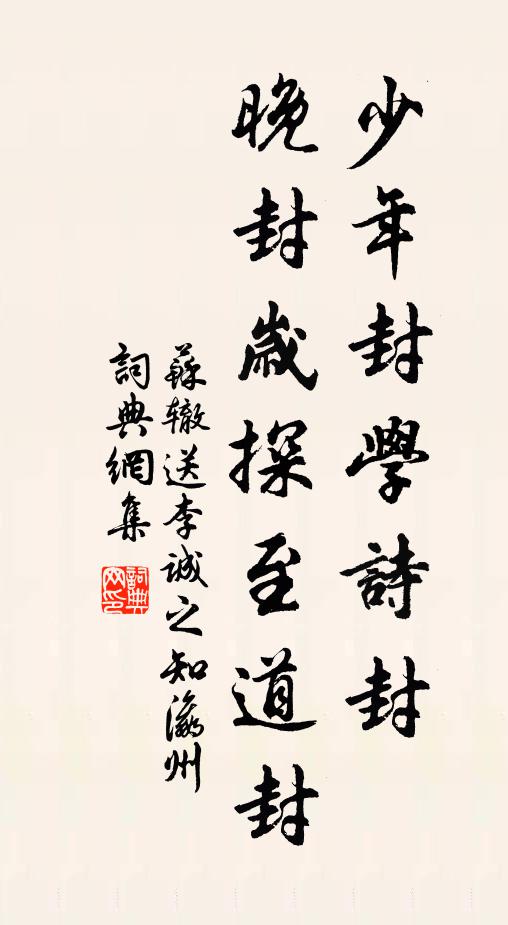 少年封學詩封
晚封歲探至道封
蘇辙送李誠之知瀛州
詞典網集
詞典網印